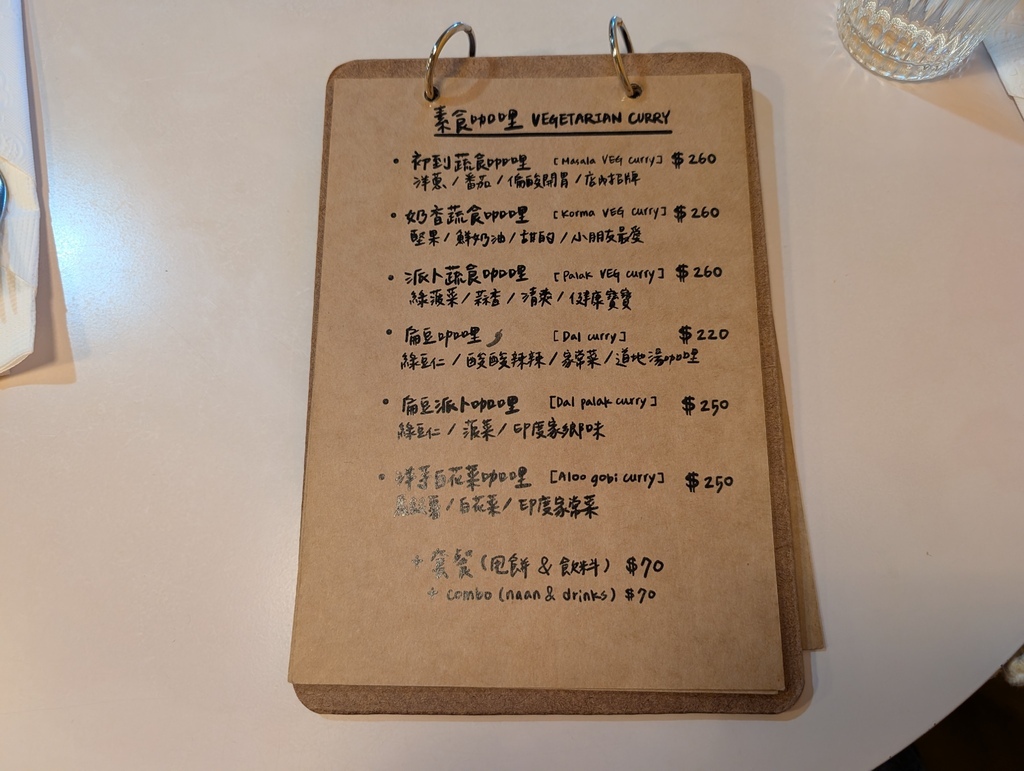 素食咖哩 VEGETARIAN CURRY
• 初到蔬食咖哩 [Masala VEG curry] $260
洋蔥 / 番茄 / 偏酸開胃 / 店內招牌
• 奶香蔬食咖哩 [Korma VEG curry] $260
堅果 / 鮮奶油 / 甜的 / 小朋友最愛
• 派卜蔬食咖哩 [Palak VEG curry] $260
綠菠菜 / 蒜香 / 清爽 / 健康寶寶
• 扁豆咖哩 [Dal curry] $220
綠豆仁 / 酸酸辣辣 / 家常菜 / 道地湯咖哩
• 扁豆派卜咖哩 [Dal palak curry] $250
綠豆仁 / 菠菜 / 印度家鄉味
• 洋芋白花菜咖哩 [Aloo gobi curry] $250
馬鈴薯 / 白花菜 / 印度家常菜
+ 套餐 (甩餅 & 飲料) $70
+ combo (naan & drinks) $70